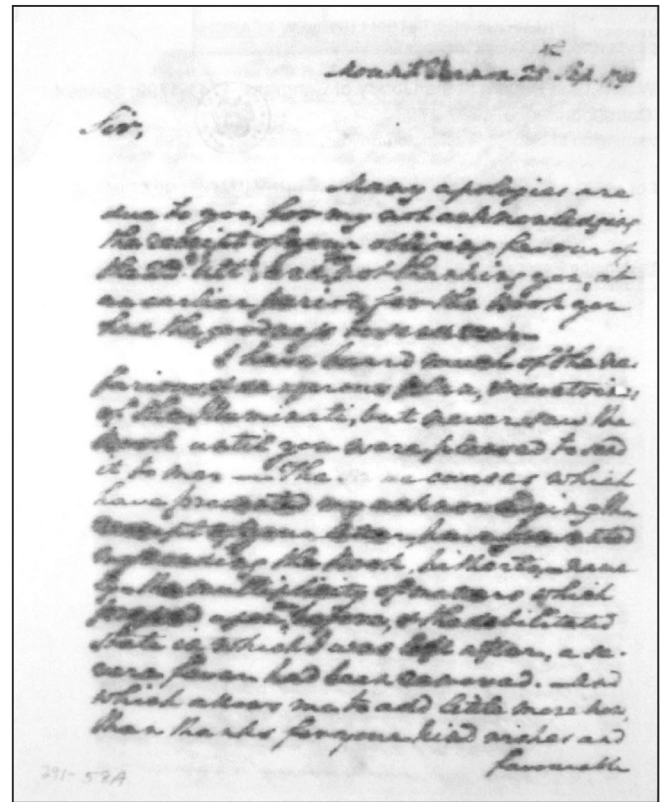 Mount Vernon 25th Sep. 1798
Sir,
Many apologies are
due to you, for my not acknowledging
the receipt of your obliging favour of
the 22d. Ulto, and for not thanking you, at
an earlier period, for the Book you
had the goodness to send me.
I have heard much of the ne-
farious, & dangerous plan, & doctrines
of the Illuminati, but never saw the
Book until you were pleased to send
it to me. — The same causes which
have prevented my acknowledging the
receipt of your letter, have prevented
my reading the Book, hitherto; namely
the multiplicity of matters which
pressed upon me before, & the debilitated
state in which I was left after, a se-
vere fever had been removed. — And
which allows me to add little more now,
than thanks for your kind wishes and
favourable
291-52A